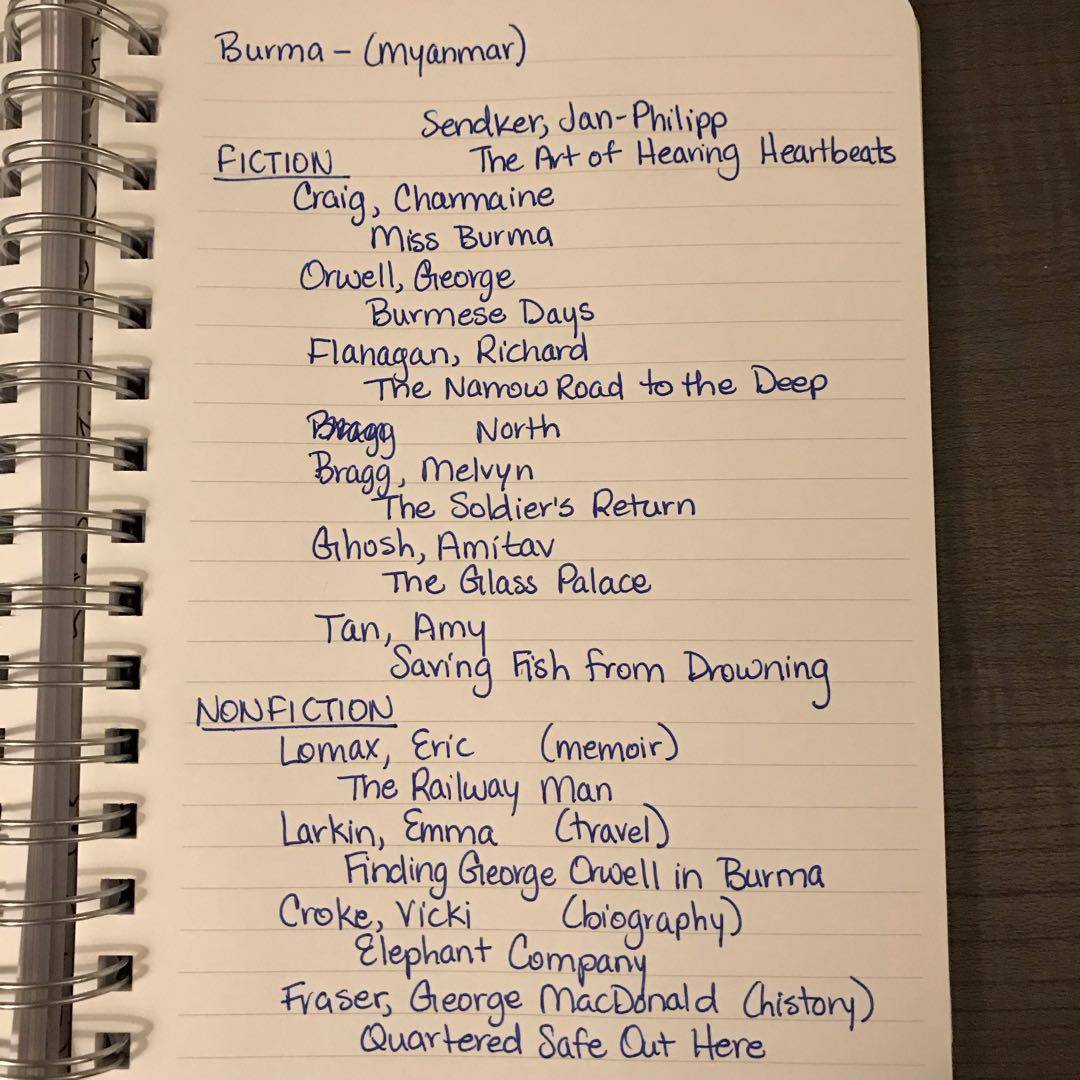 Burma - (Myanmar)
Sendker, Jan-Philipp
FICTION The Art of Hearing Heartbeats
Craig, Charmaine
Miss Burma
Orwell, George
Burmese Days
Flanagan, Richard
The Narrow Road to the Deep
Bragg North
Bragg, Melvyn
The Soldier's Return
Ghosh, Amitav
The Glass Palace
Tan, Amy
Saving Fish from Drowning
NONFICTION
Lomax, Eric (memoir)
The Railway Man
Larkin, Emma (travel)
Finding George Orwell in Burma
Croke, Vicki (biography)
Elephant Company
Fraser, George MacDonald (history)
Quartered Safe Out Here